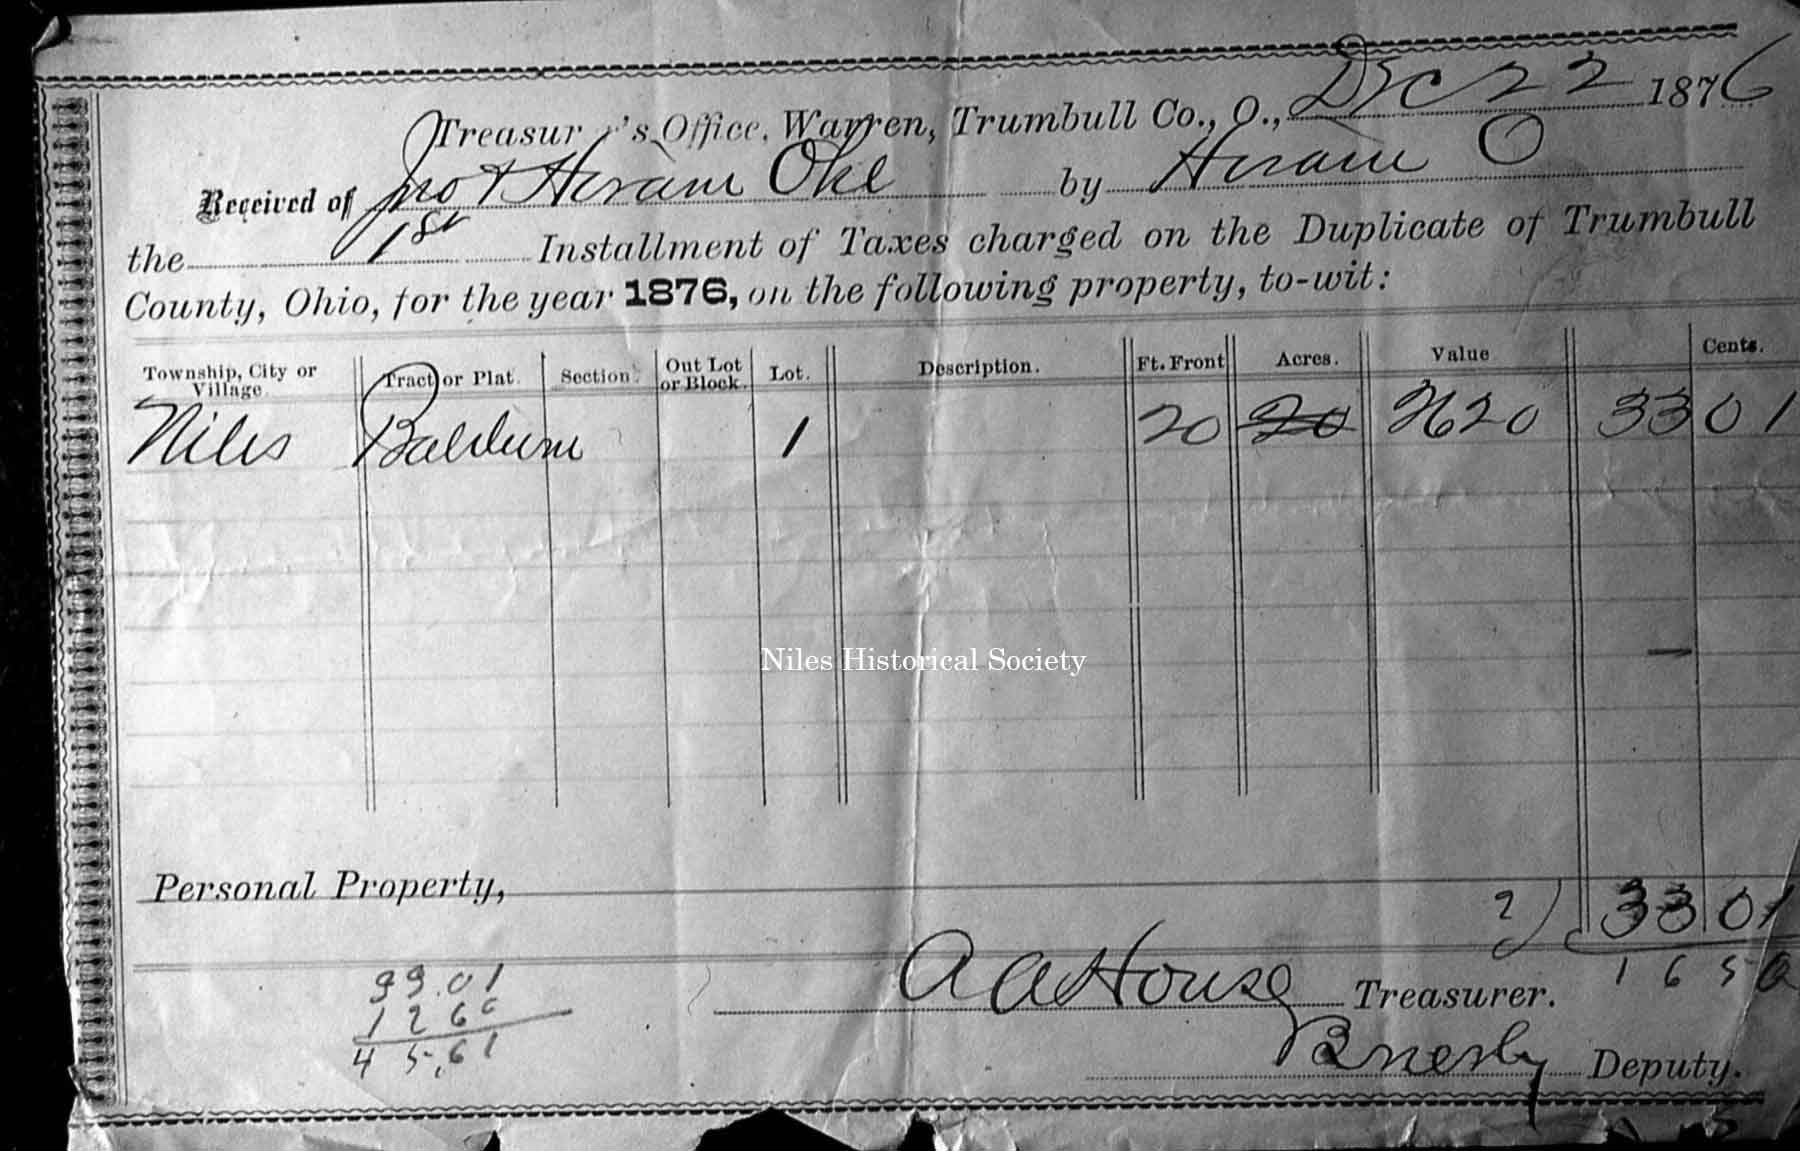 Treasur r's Office, Warren, Trumbull Co., O., Dec 22 1876
Received of Jno & Hiram Ohl by Hiram O
the 1st Installment of Taxes charged on the Duplicate of Trumbull
County, Ohio, for the year 1876, on the following property, to-wit:
Township, City or Village. Tract or Plat. Section. Out Lot or Block. Lot. Description. Ft. Front Acres. Value Cents.
Niles Baldwin 1 20 20 2620 33 01
Niles Historical Society
Personal Property, 2) 33 01
16 50
33.01
12 60
45.61
A A House Treasurer.
Deputy.